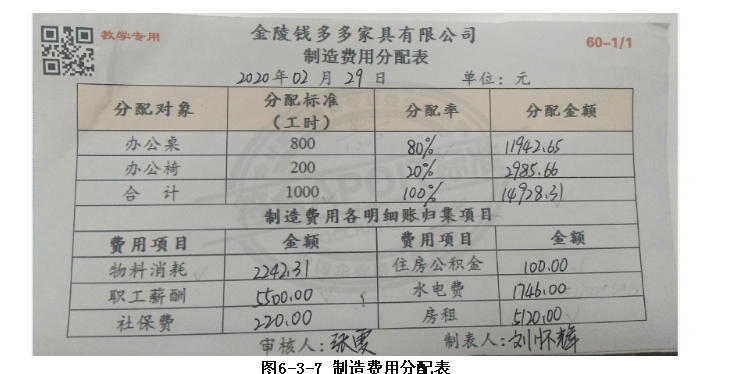 教学专用
金陵钱多多家具有限公司
60-1/1
制造费用分配表
2020年02月29日 单位：元
分配对象 分配标准（工时） 分配率 分配金额
办公桌 800 80% 11942.65
办公椅 200 20% 2985.66
合 计 1000 100% 14928.31
制造费用各明细账归集项目
费用项目 金额 费用项目 金额
物料消耗 2242.31 住房公积金 100.00
职工薪酬 5500.00 水电费 1746.00
社保费 220.00 房租 5120.00
审核人：张雯 制表人：刘怀辉
图6-3-7 制造费用分配表